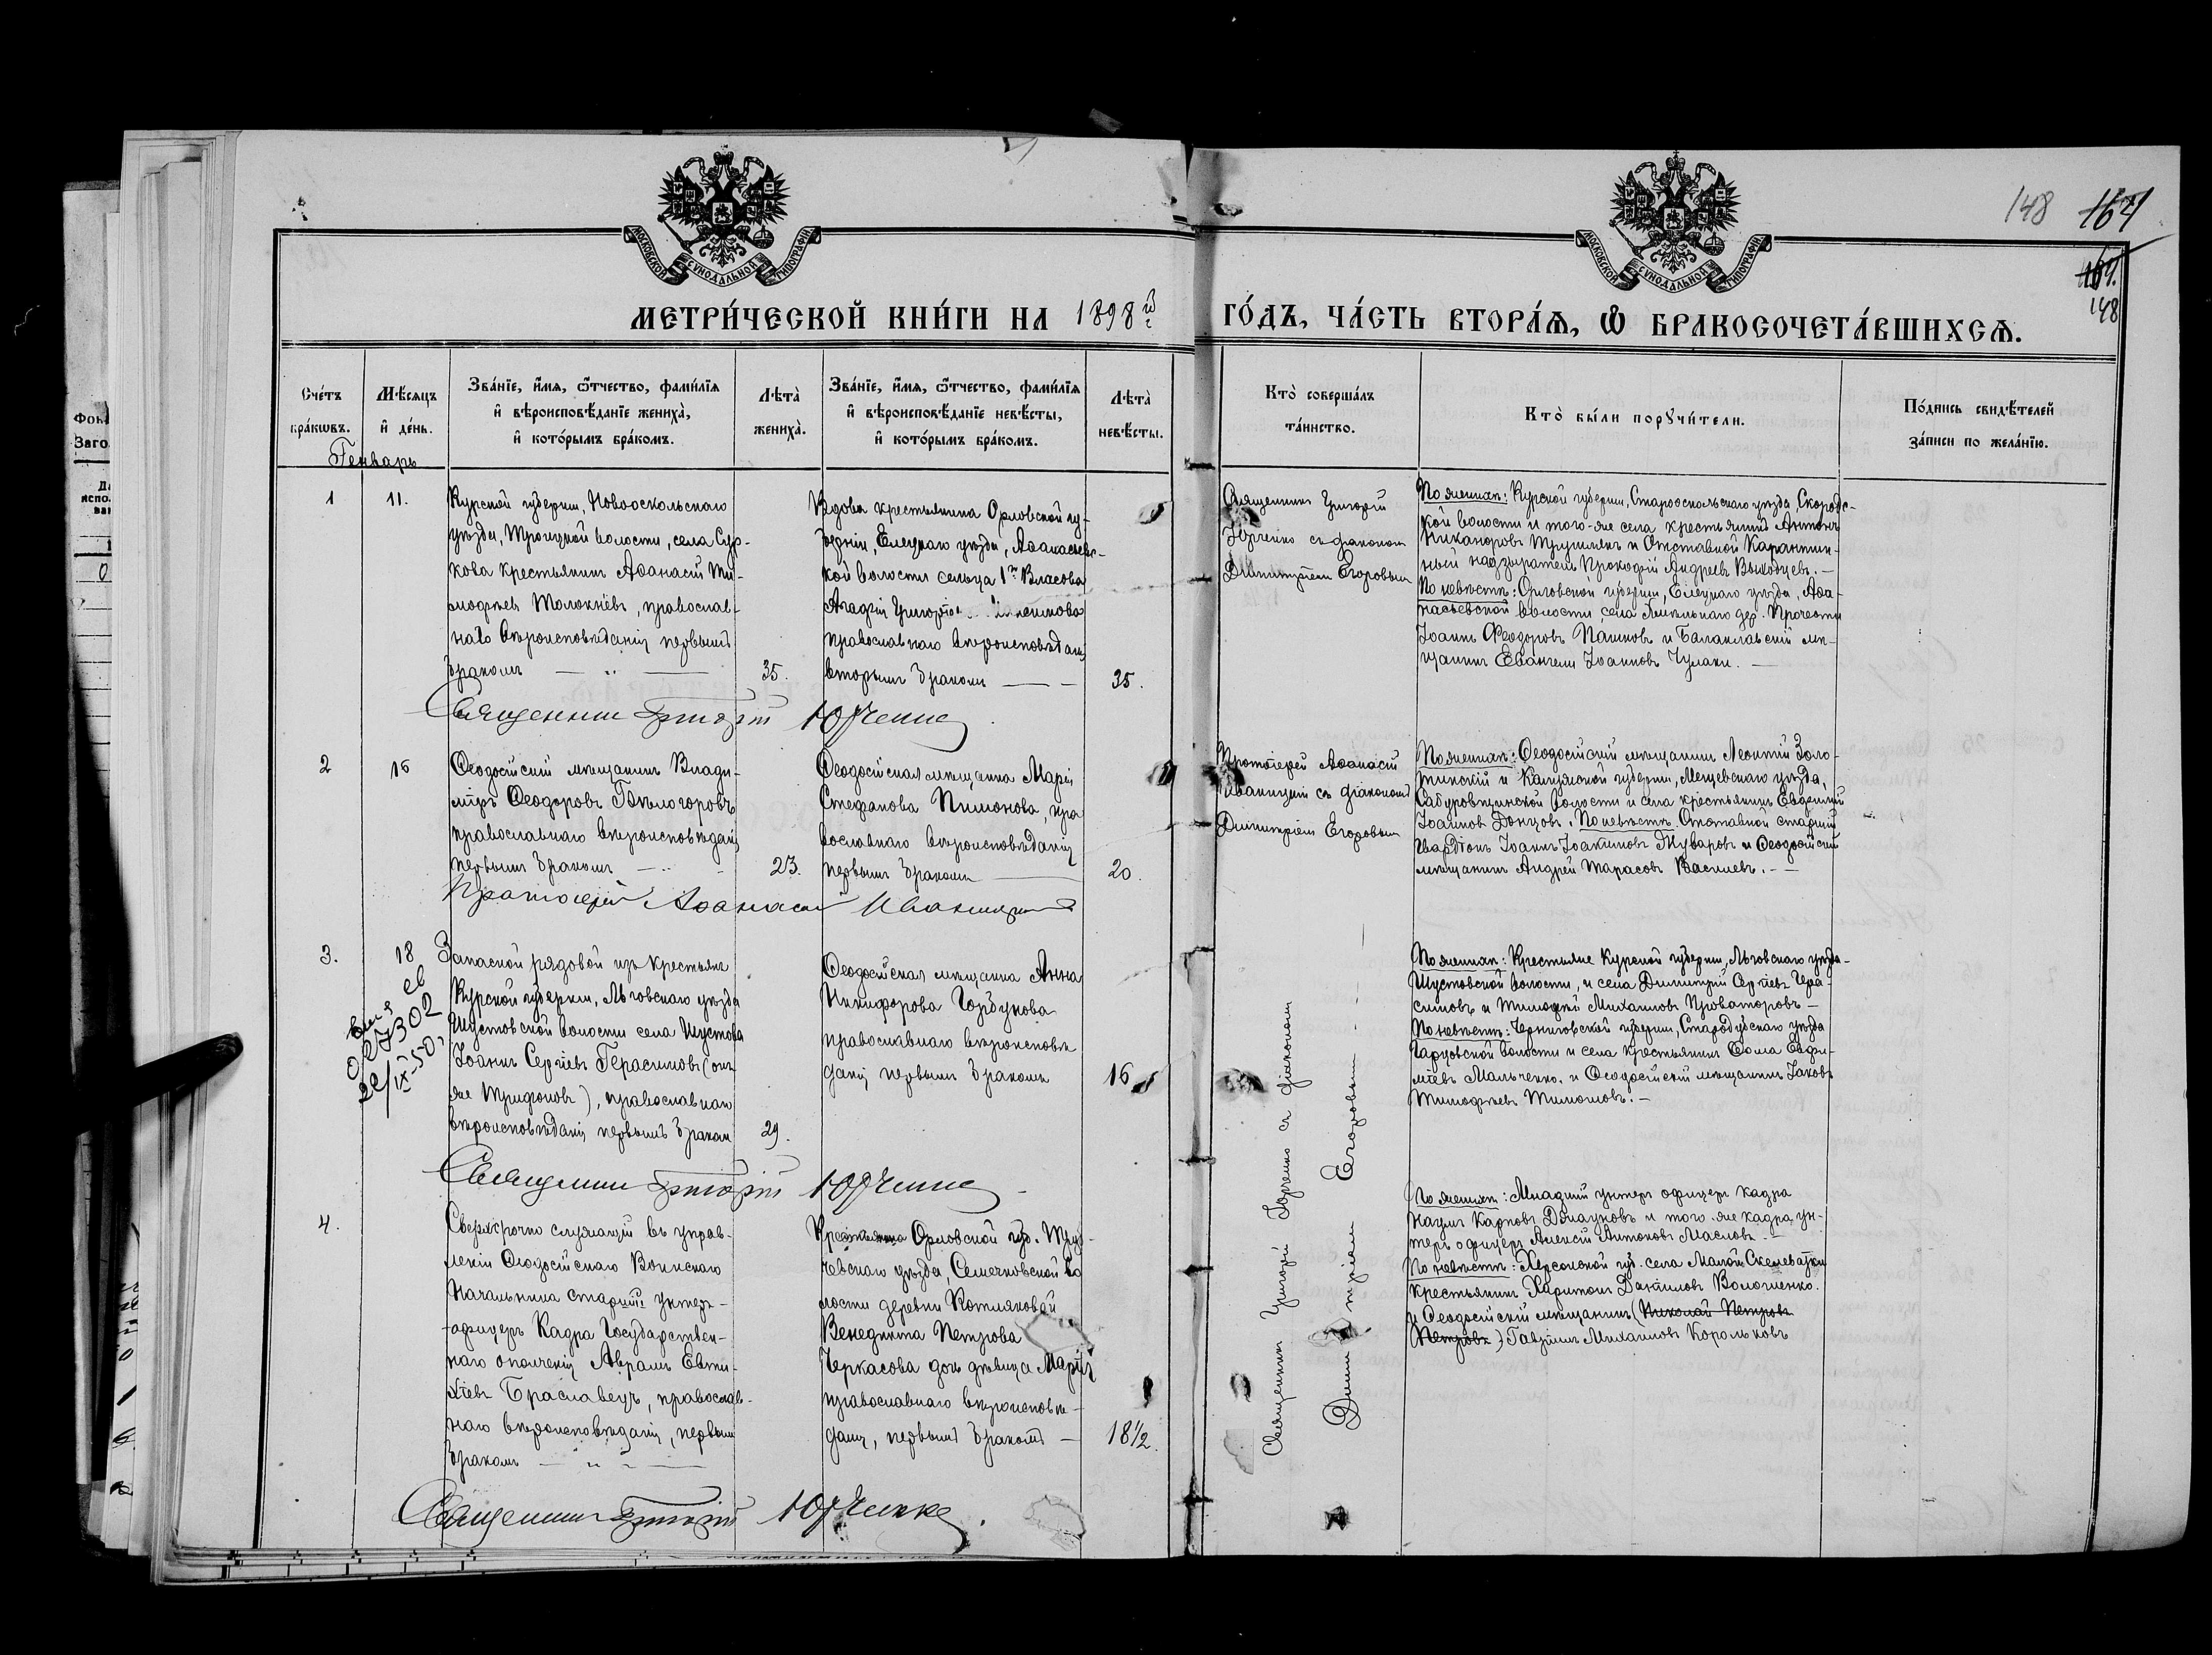 148 164
МОСКОВСКОЙ СѴНОДАЛЬНОЙ ТИПОГРАФІИ
МОСКОВСКОЙ СѴНОДАЛЬНОЙ ТИПОГРАФІИ
164.
148
МЕТРИ́ЧЕСКОЙ КНИ́ГИ НА 1898й
ГО́ДЪ, ЧА́СТЬ ВТОРА́Ѧ, Ѽ БРАКОСОЧЕТА́ВШИХСѦ.
Сче́тъ
бра́кѡвъ.
Мѣ́сяцъ
и҆ де́нь.
Зва́нїе, и҆́мя, ѻ҆́тчество, фами́лїя
и҆ вѣроисповѣ́данїе жениха̀,
и҆ кото́рымъ бра́комъ.
Лѣта̀
жениха̀.
Зва́нїе, и҆́мя, ѻ҆́тчество, фами́лїя
и҆ вѣроисповѣ́данїе невѣ́сты,
и҆ кото́рымъ бра́комъ.
Лѣта̀
невѣ́сты.
Кто̀ соверша́лъ
та́инство.
Кто̀ бы́ли порꙋчи́тели.
По́дпись свидѣ́телей
за́писи по жела́нїю.
Генварь
1
11.
Курской губерніи, Новооскольскаго
уѣзда, Троицкой волости, села Сур-
кова крестьянинъ Аѳанасій Ти-
моѳеевъ Толокнѣвъ, православ-
наго вѣроисповѣданія первымъ
бракомъ
35.
Вдова крестьянина Орловской гу-
берніи, Елецкаго уѣзда, Аѳанасьевс-
кой волости сельца 1го Власова
Агаѳія Григоріе
православнаго вѣроисповѣданія
вторымъ бракомъ
35.
Священникъ Григорій
Юрченко съ діакономъ
Димитріемъ Егоровымъ
По женихѣ: Курской губерніи, Старооскольскаго уѣзда, Скородс-
кой волости и того-же села крестьянинъ Антонъ
Никаноровъ и Отставной Карантин-
ный надзиратель Прокофій Андреевъ Выходцевъ.-
По невѣстѣ: Орловской губерніи, Елецкаго уѣзда, Аѳа-
насьевской волости села дер.
Іоаннъ Ѳеодоровъ Пашковъ и Балаклавскій мѣ-
щанинъ Евангели Іоанновъ Чулаки.
Священникъ Григорій Юрченко.
2
16
Ѳеодосійскій мѣщанинъ Влади-
міръ Ѳеодоровъ Бѣлогоровъ
православнаго вѣроисповѣданія
первымъ бракомъ
23.
Ѳеодосійская мѣщанка Марія
Стефанова Пимонова, пра
вославнаго вѣроисповѣданія
первымъ бракомъ
20.
Протоіерей Аѳанасій
Иваницкій съ діакономъ
Димитріемъ Егоровымъ
По женихѣ: Ѳеодосійскій мѣщанинъ Леонтій Золо-
тинскій и Калужской губерніи, Мещевскаго уѣзда,
Сабуровщинской волости и села крестьянинъ Евдокимъ
Іоанновъ Донцовъ. По невѣстѣ. Отставной старшій
Іоаннъ Іоакимовъ Туваровъ и Ѳеодосійскій
мѣщанинъ Андрей Тарасовъ Василевъ.-
Протоіерей Аѳанасій Иваницкій
3.
18
302
22/IX-50.
Запасной рядовой изъ крестьянъ
Курской губерніи, Льговскаго уѣзда
Шустовской волости села Шустова
Іоаннъ Сергіевъ Герасимовъ (онъ
же Трифоновъ), православнаго
вѣроисповѣданія первымъ бракомъ
29.
Ѳеодосійская мѣщанка Анна
Никифорова Горбунова
православнаго вѣроисповѣ
данія первымъ бракомъ
16
По женихѣ: Крестьяне Курской губерніи, Льговскаго уѣзда-
Шустовской волости, и села Димитрій Сергіевъ Гера-
симовъ и Тимоѳей Михаиловъ
По невѣстѣ: Черниговской губерніи, Стародубскаго уѣзда
волости и села крестьянинъ Ѳома Евфи-
міевъ Мальченко. и Ѳеодосійскій мѣщанинъ Іаковъ
Тимоѳеевъ Тимошовъ.-
Священникъ Григорій Юрченко
4.
Сверхсрочно служащій въ управ-
леніи Ѳеодосійскаго Воинскаго
Начальника старшій унтеръ-
-офицеръ Кадра Государствен-
наго ополченія Аврамъ Евти-
хіевъ Браславецъ, православ-
наго вѣроисповѣданія, первымъ
бракомъ
Крестьянина Орловской губ. Труб-
чевскаго уѣзда, Семячковской во
лости деревни Котляковой
Венедикта Петрова
Черкасова дочь дѣвица Марія
православнаго вѣроисповѣ-
данія, первымъ бракомъ -
18½.
Священникъ Григорій Юрченко съ діакономъ
Димитріемъ Егоровымъ
По женихѣ: Младшій унтеръ офицеръ кадра
Наумъ Карповъ и того же кадра ун-
теръ офицеръ Алексій Антоновъ Масловъ.-
По невѣстѣ: Херсонской губ. села Малой Скелеватки
крестьянинъ Харитонъ Даніиловъ Волошенко.
и Ѳеодосійскій мѣщанинъ (Николай Петровъ
Петровъ) Гавріилъ Михаиловъ Корольковъ
Священникъ Григорій Юрченко.